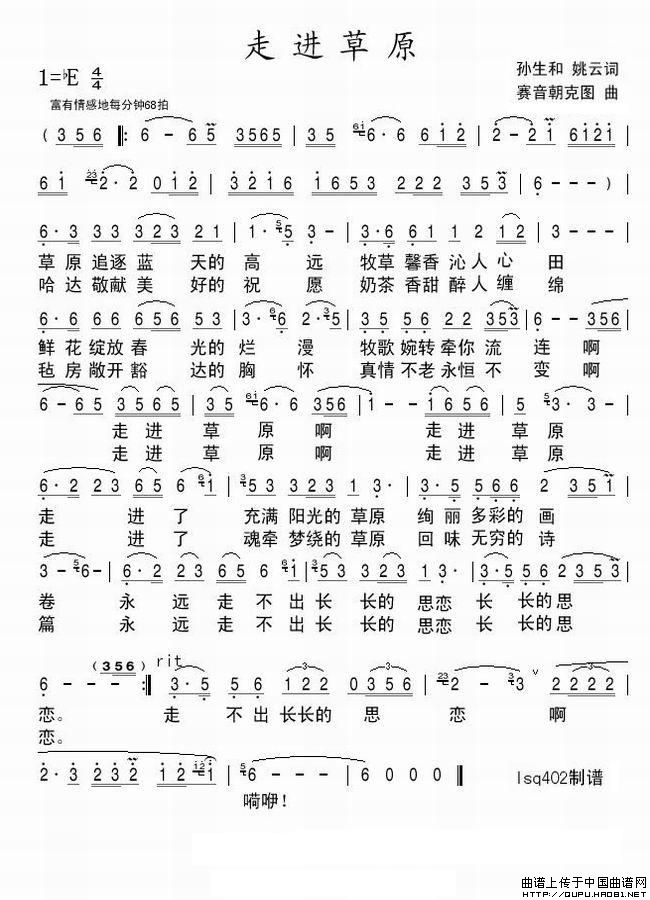 走进草原
1=♭E 4/4
孙生和 姚云词
赛音朝克图 曲
富有情感地每分钟68拍
( 3 5 6 ‖: 6 - 6 5 3 5 6 5 | 3 5 6i 6· 6 6 i 2 | 2 - 2 i 6 i 2 i |
6 i 23 2· 2 0 i 2 | 3 2 i 6 i 6 5 3 2 2 2 3 5 3 | 6 - - - ) |
6· 3 3 3 3 2 3 2 1 | 1· 5 5 3 - | 3· 6 6 1 1 2 1 2 | 3 - - - |
草 原 追逐 蓝 天的 高 远 牧草 馨香 沁人 心 田
哈 达 敬献 美 好的 祝 愿 奶茶 香甜 醉人 缠 绵
6· 6 6 6 6 5 6 5 3 | 3· 6 6 2· 5 5 | 3· 2 2 1 2 2 3 5 3 | 6 - - 3 5 6 |
鲜 花 绽放 春 光的 烂 漫 牧歌 婉转 牵你 流 连 啊
毡 房 敞开 豁 达的 胸 怀 真情 不老 永恒 不 变 啊
6 - 6 5 3 5 6 5 | 3 5 6i 6· 6 3 5 6 | 1 - - 1 6 5 6 | 5 5 3· 3 - |
走 进 草 原 啊 走 进 草 原
走 进 草 原 啊 走 进 草 原
6· 2 2 3 6 5 6 6 i | 3 5 3 3 2 3 2 1 3· | 3· 5 5 6 5 6 2 3 5 3 |
走 进 了 充满 阳光的 草原 绚 丽 多彩的 画
走 进 了 魂牵 梦绕的 草原 回 味 无穷的 诗
3 - 5 6 - | 6· 2 2 3 6 5 6 6i i | 3 5 3 3 2 3 2 1 3· | 3· 5 5 6 2 3 5 3 |
卷 永 远 走 不 出 长 长的 思恋 长 长的 思
篇 永 远 走 不 出 长 长的 思恋 长 长的 思
(3 5 6) rit
6 - - - :‖ 3· 5 5 6 1 2 2 | 0 3 5 6 3 5 6 | 23 2 - 3 3 ∨ 2 2 2 2 |
恋。 走 不 出 长长的 思 恋 啊
恋。
2· 3 2 3 2 1 2 i2 i | 5 6 - - - | 6 0 0 0 ‖
嗬咿!
lsq402制谱
曲谱上传于中国曲谱网
HTTP://WWW.QUPU.HAO81.NET